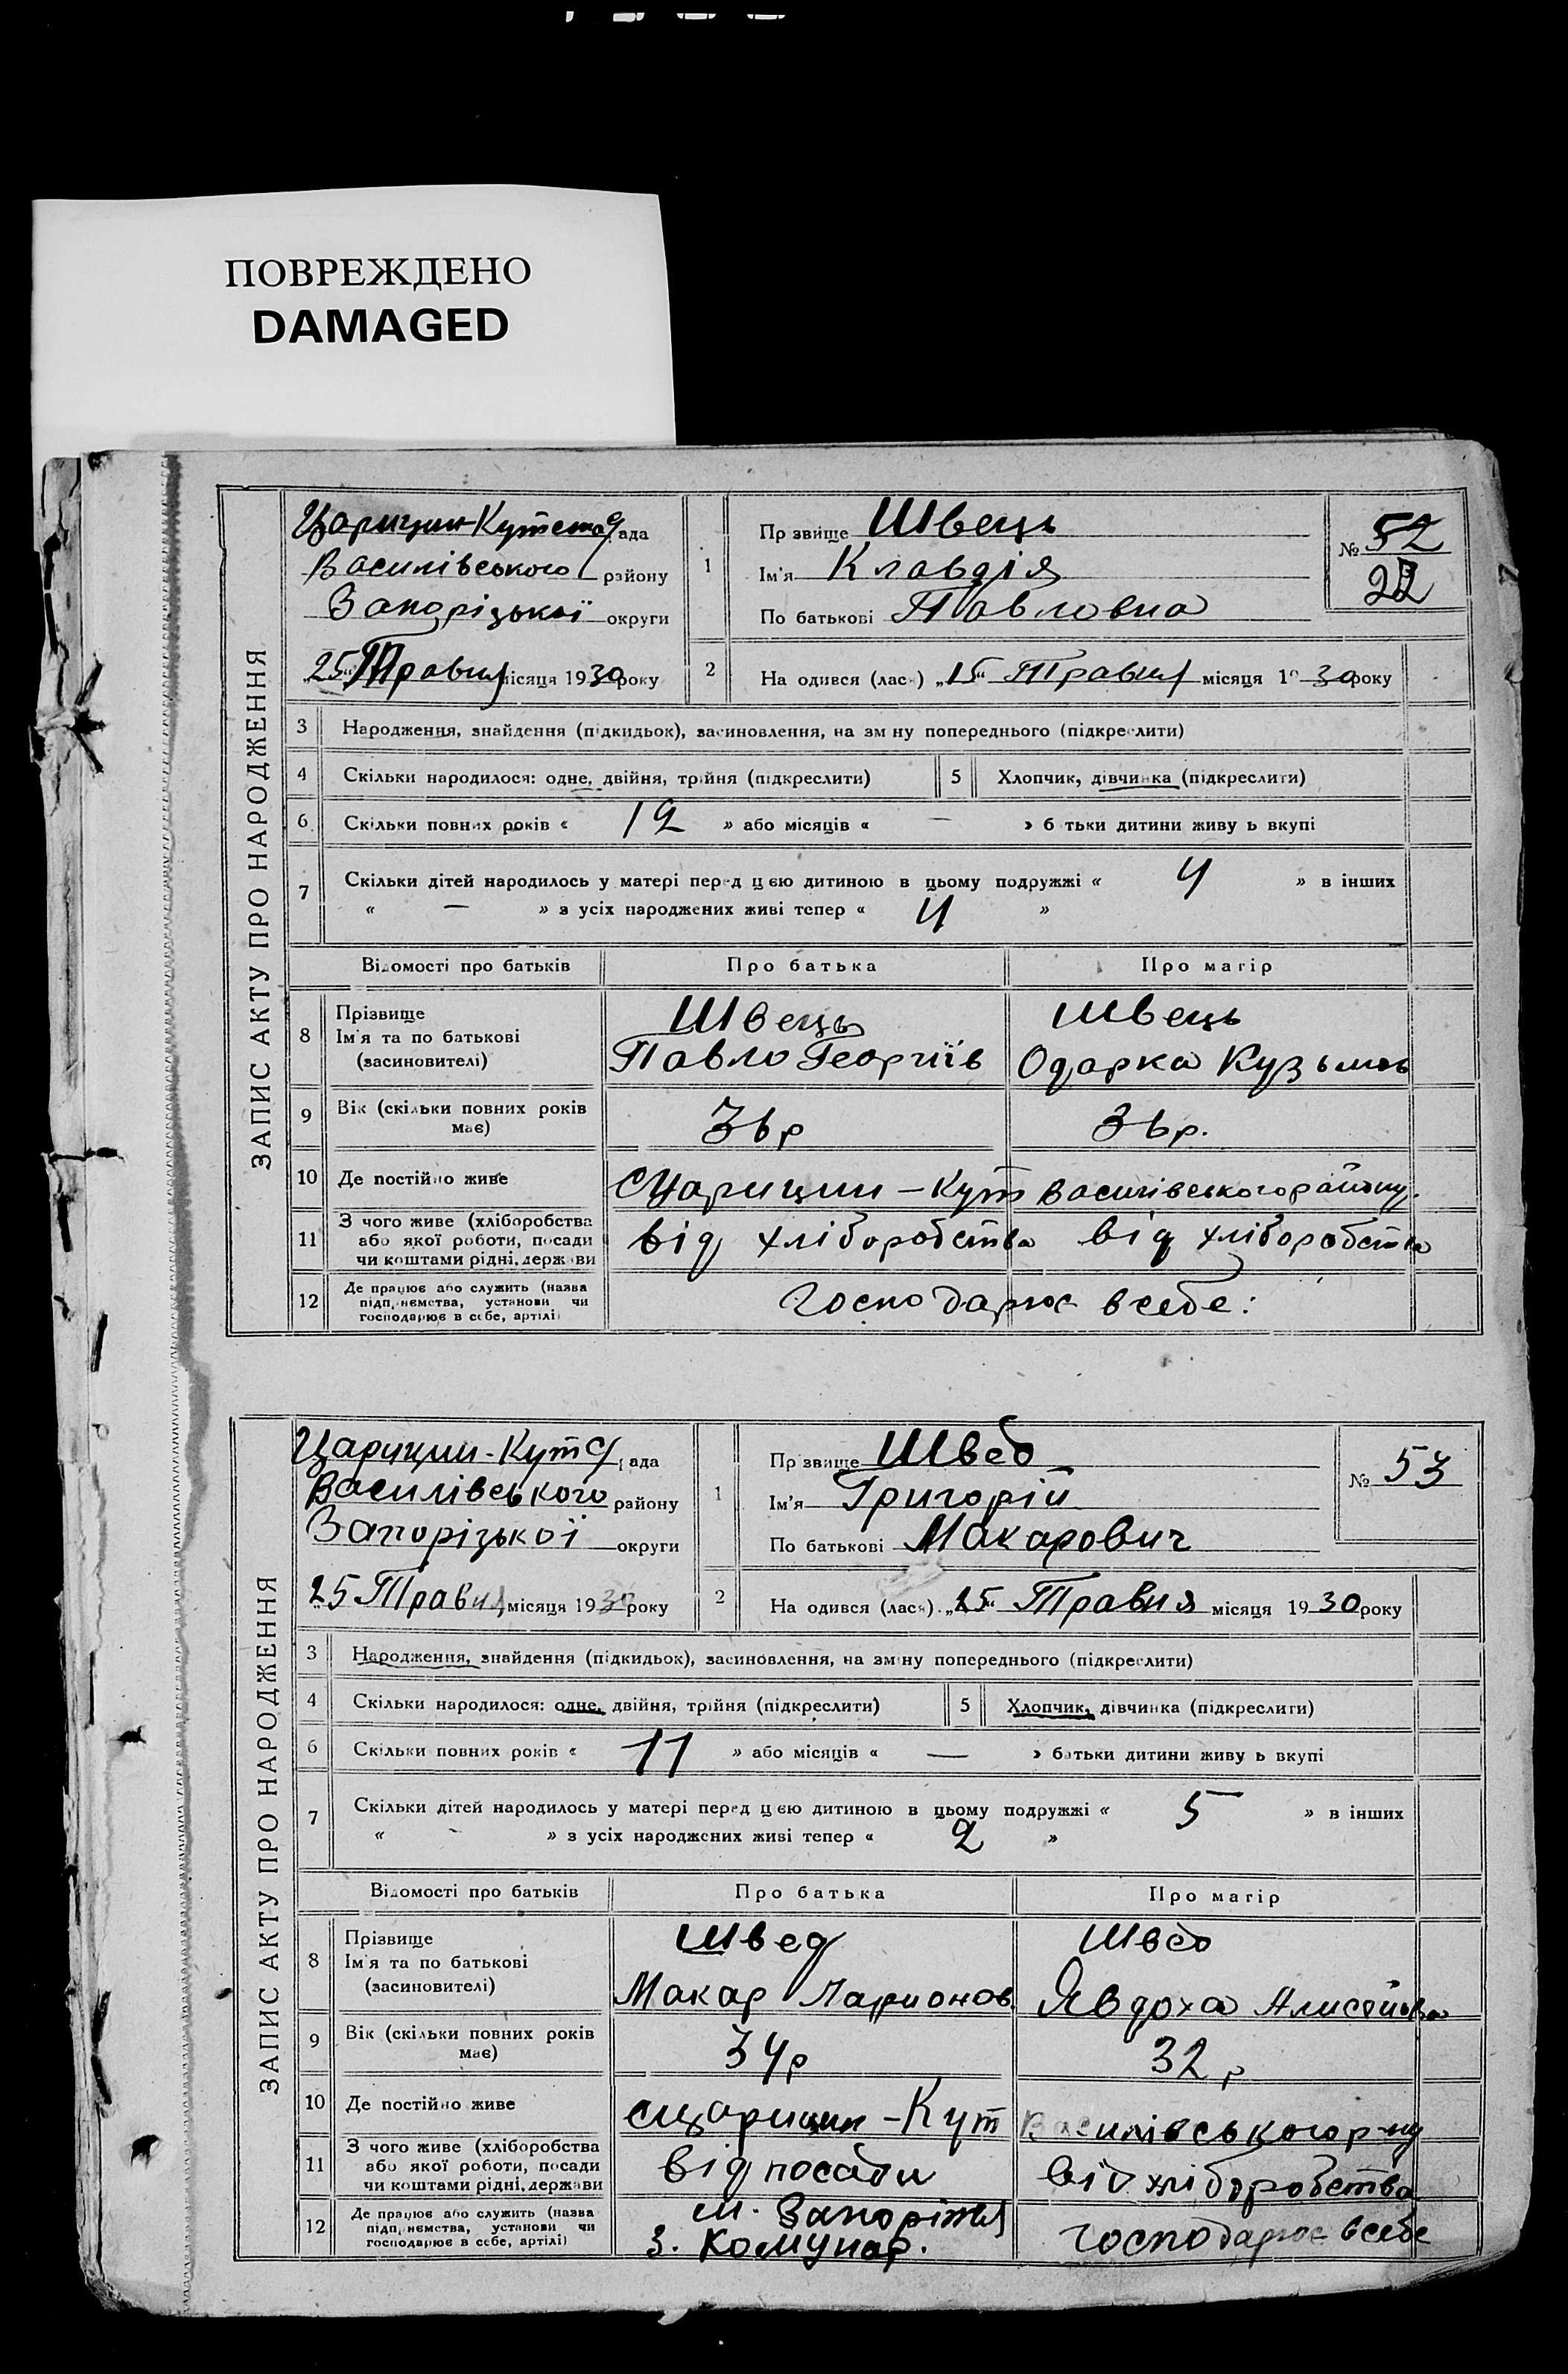 ПОВРЕЖДЕНО
DAMAGED
ЗАПИС АКТУ ПРО НАРОДЖЕННЯ
Царицин-Кутська рада
Василівського району
Запорізької округи
25 Травня місяця 1930 року
1 Прізвище Швець
Ім'я Клавдія
По батькові Павловна
№ 52
22
2 Народився (лася) „15“ Травня місяця 1930 року
3 Народження, знайдення (підкидьок), засиновлення, на зміну попереднього (підкреслити)
4 Скільки народилося: одне, двійня, трійня (підкреслити) 5 Хлопчик, дівчинка (підкреслити)
6 Скільки повних років « 12 » або місяців « — » батьки дитини живуть вкупі
7 Скільки дітей народилось у матері перед цією дитиною в цьому подружжі « 4 » в інших
« — » з усіх народжених живі тепер « 4 »
Відомості про батьків Про батька Про матір
8 Прізвище
Ім'я та по батькові
(засиновителі)
Швець
Павло Георгіїв
Швець
Одарка Кузьмов
9 Вік (скільки повних років має) 36р 36р.
10 Де постійно живе с Царицин-Кут Василівського району.
11 З чого живе (хліборобства
або якої роботи, посади
чи коштами рідні, держави
від хліборобства від хліборобства
12 Де працює або служить (назва
підприємства, установи чи
господарює в себе, артілі)
господарює в себе:
ЗАПИС АКТУ ПРО НАРОДЖЕННЯ
Царицин-Кут с/рада
Василівського району
Запорізької округи
25 Травня місяця 1930 року
1 Прізвище Швед
Ім'я Григорій
По батькові Макарович
№ 53
2 Народився (лася) „25“ Травня місяця 1930 року
3 Народження, знайдення (підкидьок), засиновлення, на зміну попереднього (підкреслити)
4 Скільки народилося: одне, двійня, трійня (підкреслити) 5 Хлопчик, дівчинка (підкреслити)
6 Скільки повних років « 11 » або місяців « — » батьки дитини живуть вкупі
7 Скільки дітей народилось у матері перед цією дитиною в цьому подружжі « 5 » в інших
« - » з усіх народжених живі тепер « 2 »
Відомості про батьків Про батька Про матір
8 Прізвище
Ім'я та по батькові
(засиновителі)
Швед
Макар Ларионов
Швед
Явдоха
9 Вік (скільки повних років має) 34р 32р
10 Де постійно живе с Царицин-Кут Василівського р-ну
11 З чого живе (хліборобства
або якої роботи, посади
чи коштами рідні, держави
від посади від хліборобства
12 Де працює або служить (назва
підприємства, установи чи
господарює в себе, артілі)
м. Запоріжжя
З. Комунар.
господарює в себе